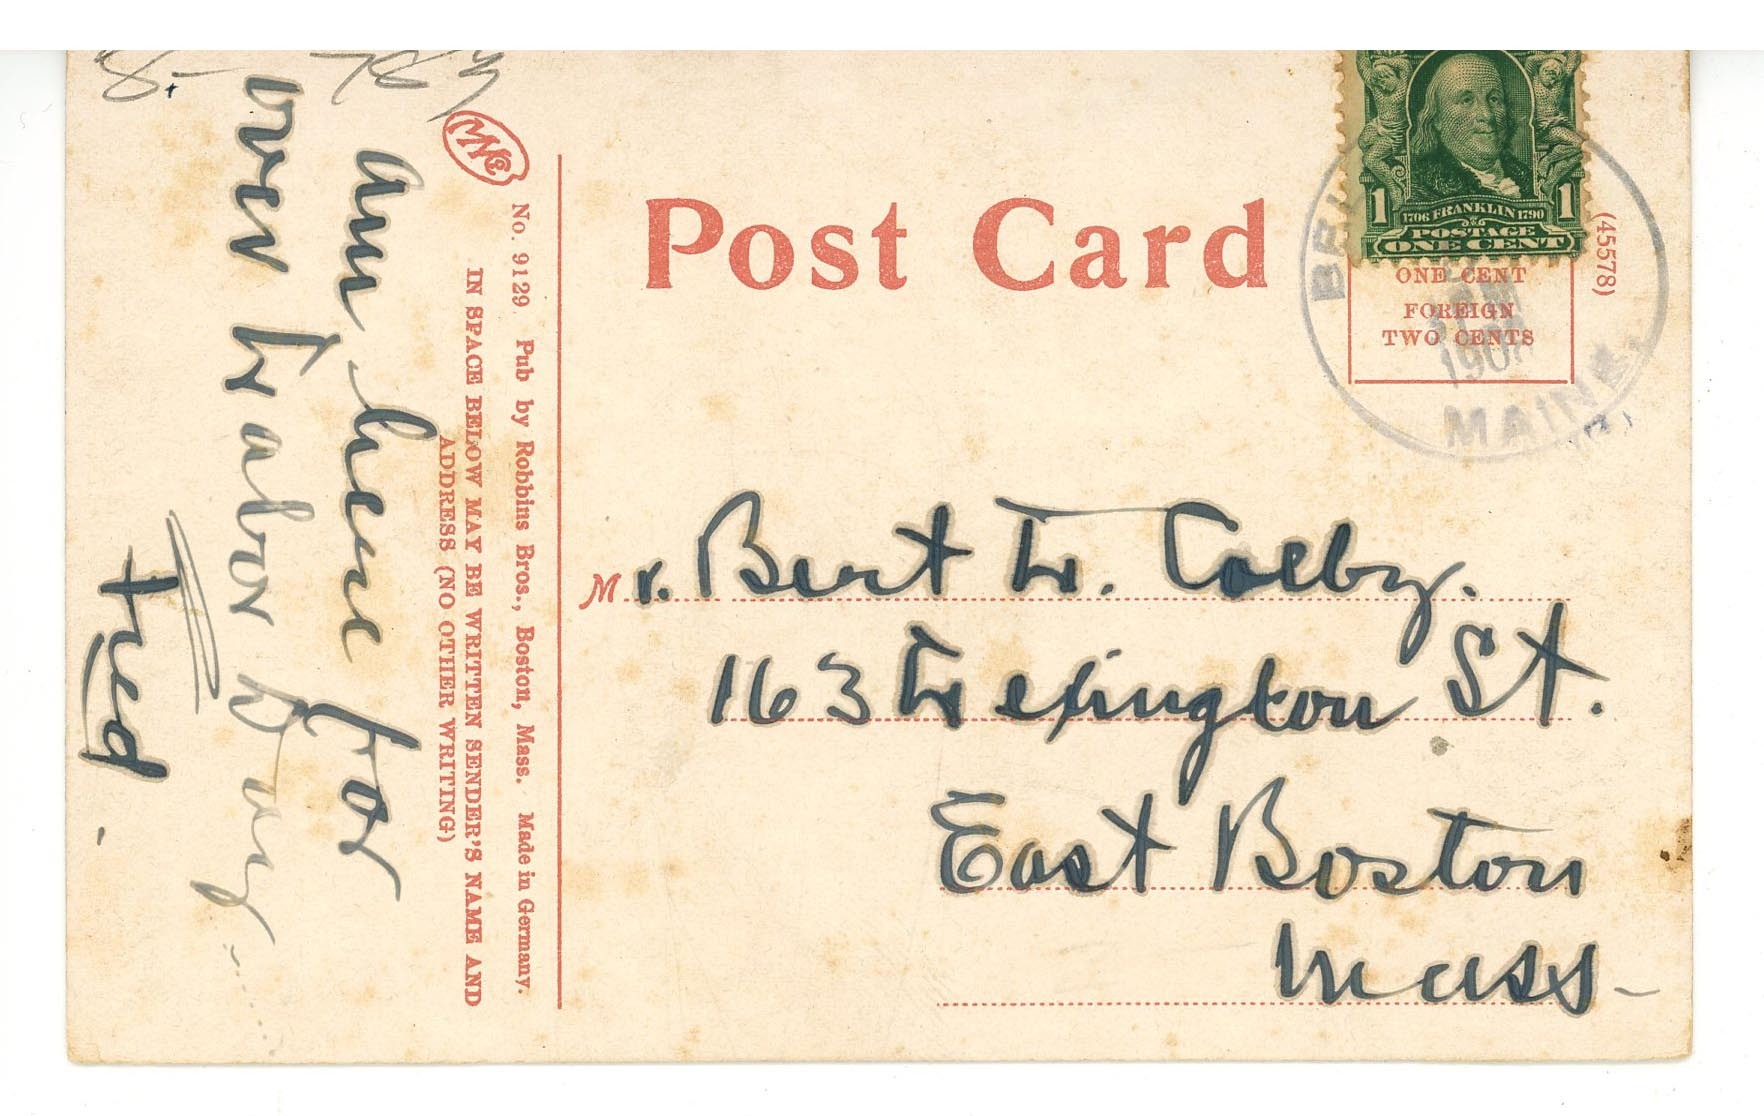 Post Card
1706 FRANKLIN 1790
1 1
POSTAGE
ONE CENT
ONE CENT
FOREIGN
TWO CENTS
(45578)
MAINE.
Mr. Bert L. Colby.
163 Lexington St.
East Boston
Mass-
No. 9129 Pub by Robbins Bros., Boston, Mass. Made in Germany.
IN SPACE BELOW MAY BE WRITTEN SENDER'S NAME AND
ADDRESS (NO OTHER WRITING)
am here for
over
Fred.